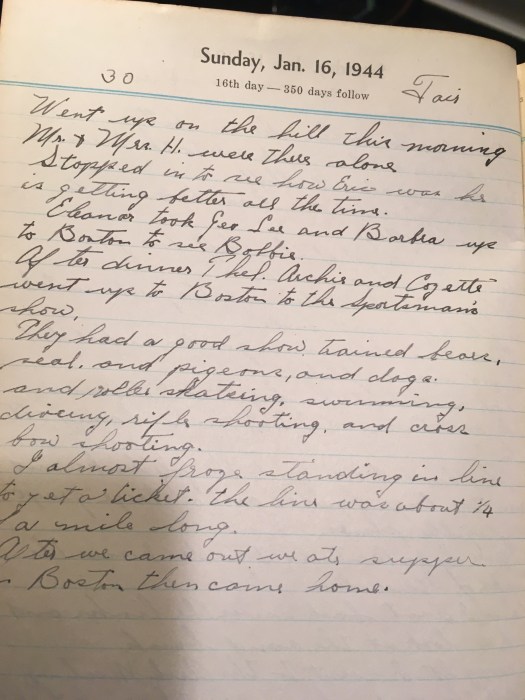 Sunday, Jan. 16, 1944
30
16th day — 350 days follow
Fair
Went up on the hill this morning
Mr. & Mrs. H. were there alone
Stopped in to see how Eric was he
is getting better all the time.
Eleanor took Geo Lee and Barbra up
to Boston to see Bobbie.
After dinner I Thel. Archie and Cozette
went up to Boston to the Sportsman's
show.
They had a good show trained bears,
seal. and pigeons, and dogs.
and roller skateing, swimming,
diveing, rifle shooting, and cross
bow shooting.
I almost froze standing in line
to get a ticket. the line was about 1/4
a mile long.
After we came out we ate supper
Boston then came home.